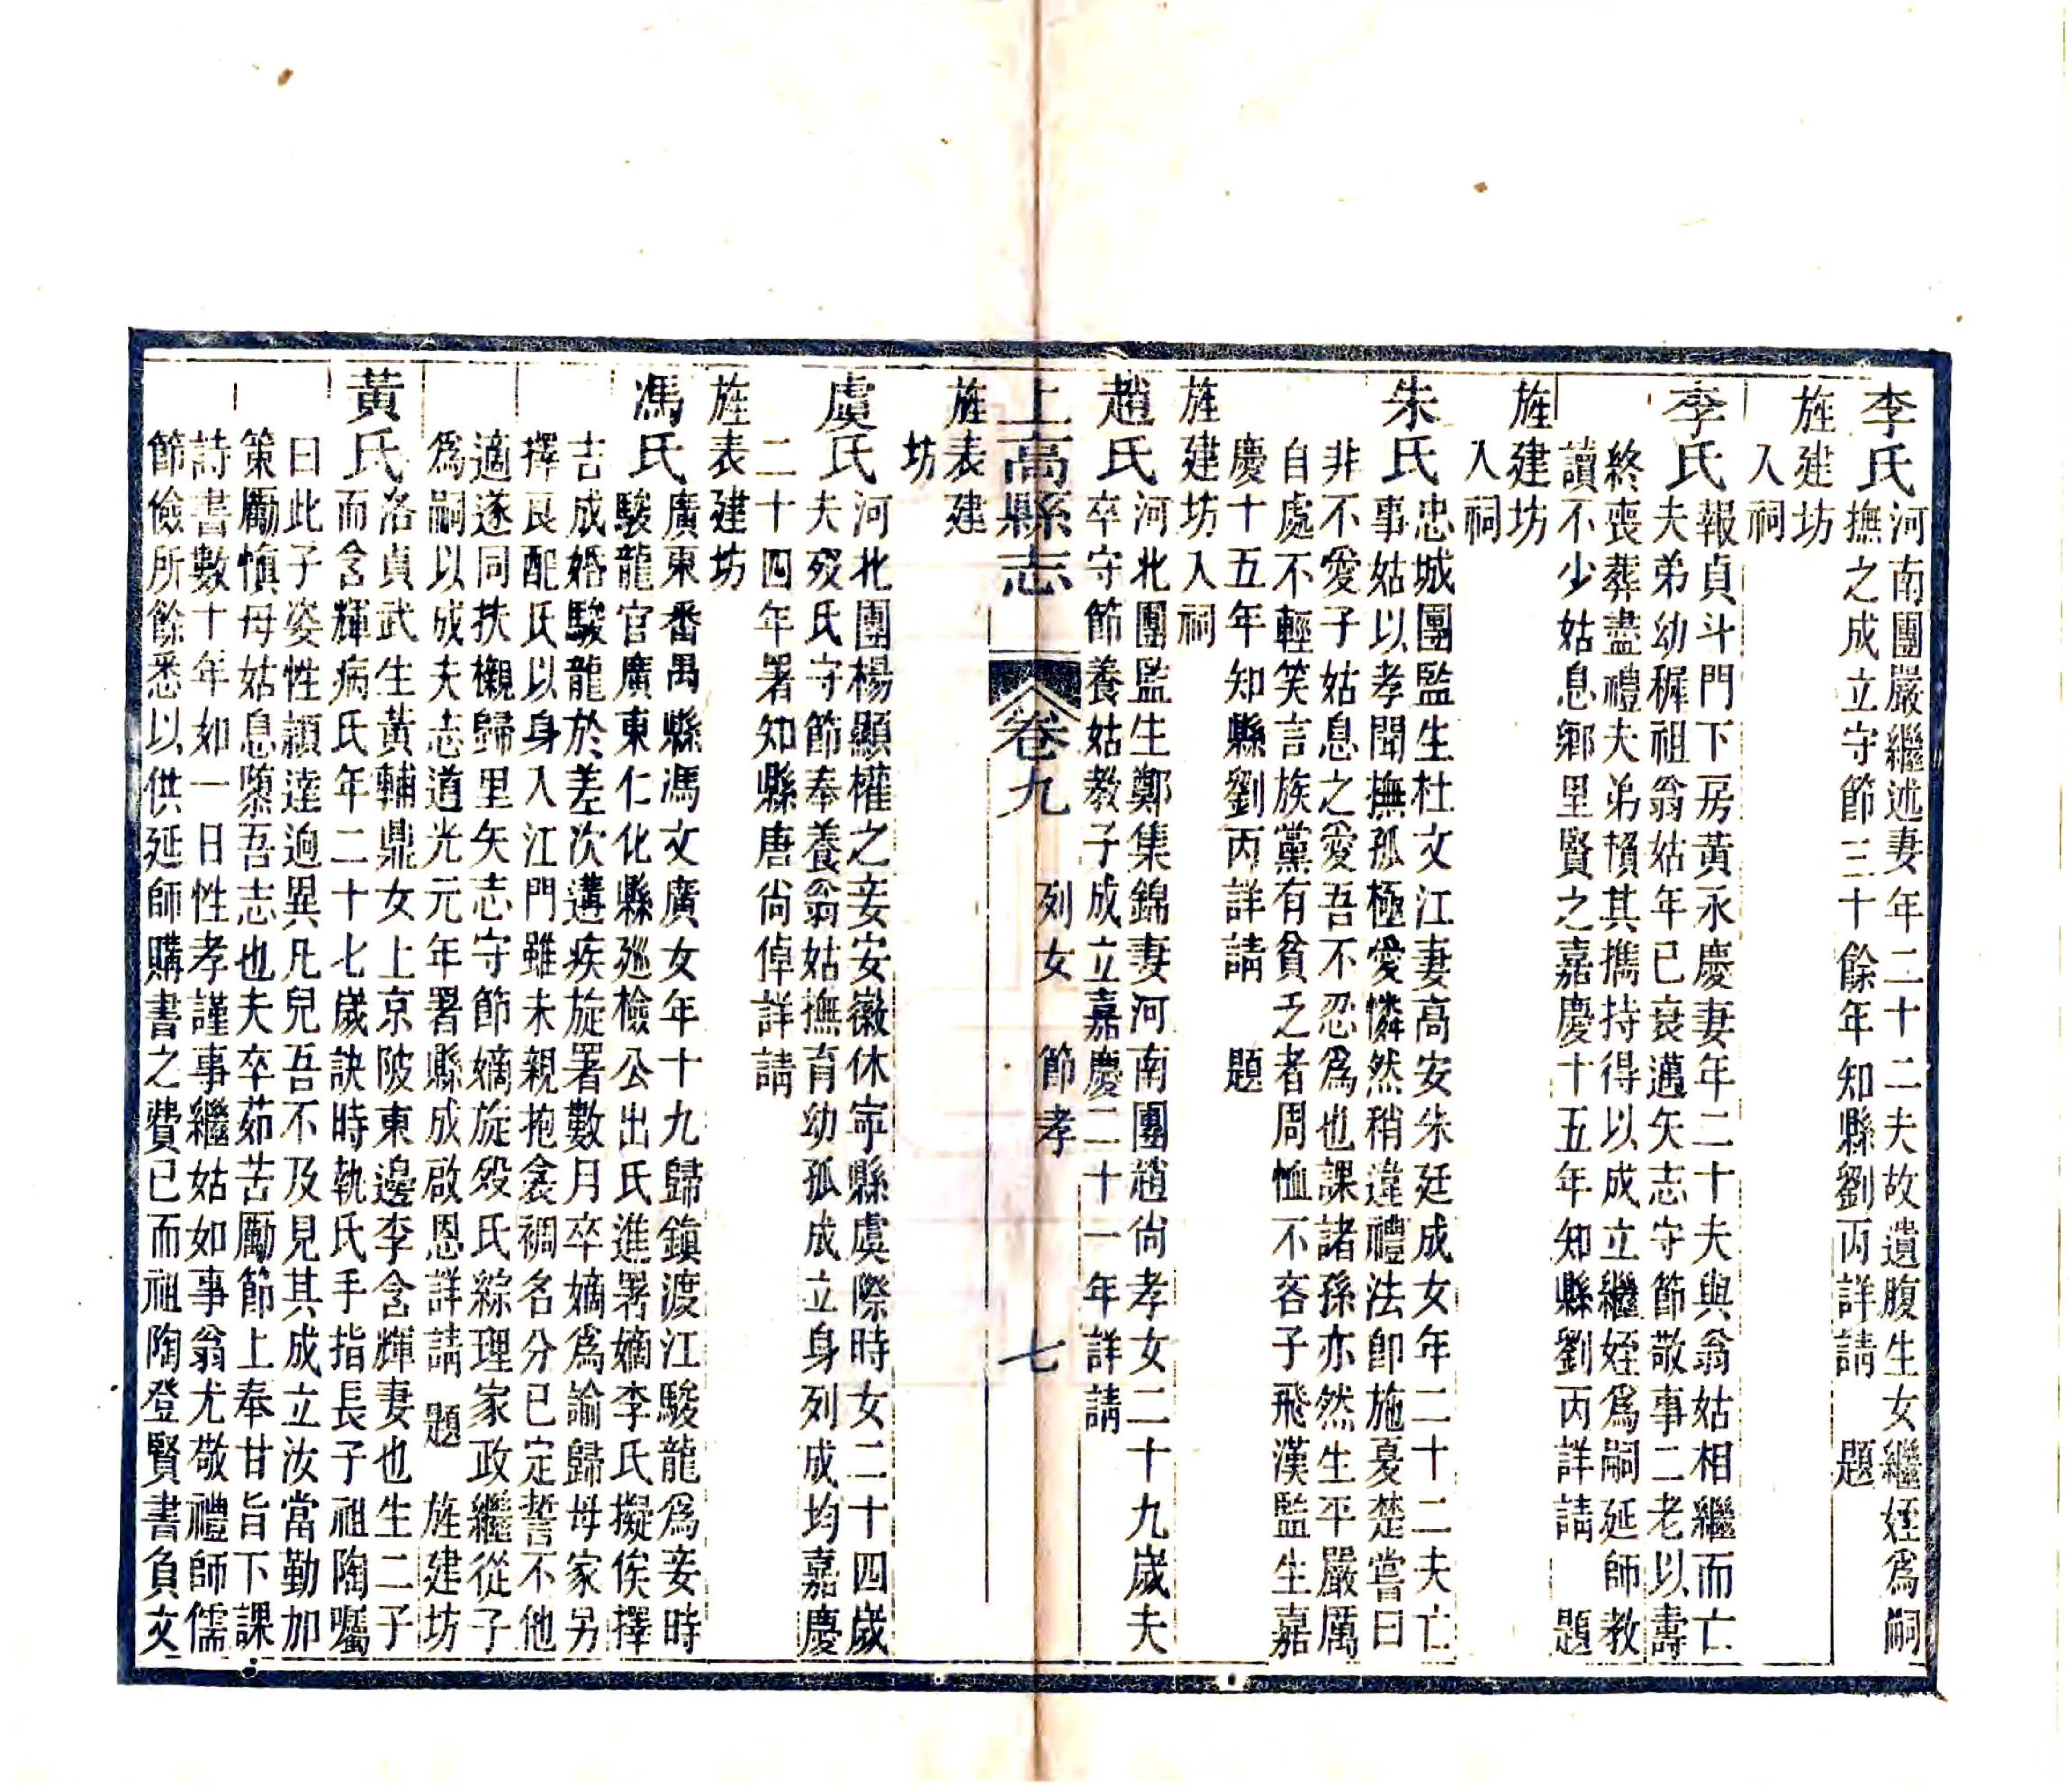 李氏河南團嚴繼述妻年二十二夫故遺腹生女繼姪爲嗣
撫之成立守節三十餘年知縣劉丙詳請 題
旌建坊
入祠
李氏報貞斗門下房黃永慶妻年二十夫與翁姑相繼而亡
夫弟幼穉祖翁姑年已衰邁矢志守節敬事二老以壽
終喪葬盡禮夫弟賴其攜持得以成立繼姪爲嗣延師教
讀不少姑息鄉里賢之嘉慶十五年知縣劉丙詳請 題
旌建坊
入祠
朱氏忠城團監生杜文江妻高安朱廷成女年二十二夫亡
事姑以孝聞撫孤極愛憐然稍違禮法卽施戞楚嘗曰
非不愛子姑息之愛吾不忍爲也課諸孫亦然生平嚴厲
自處不輕笑言族黨有貧乏者周恤不吝子飛漢監生嘉
慶十五年知縣劉丙詳請 題
旌建坊入祠
趙氏河北團監生鄭集錦妻河南團趙尙孝女二十九歲夫
卒守節養姑教子成立嘉慶二十一年詳請
上高縣志 卷九 列女 節孝 七
旌表建
坊
虞氏河北團楊顯權之妾安徽休寧縣虞際時女二十四歲
夫歿氏守節奉養翁姑撫育幼孤成立身列成均嘉慶
二十四年署知縣唐尙倬詳請
旌表建坊
馮氏廣東番禺縣馮文廣女年十九歸鎮渡江駿龍爲妾時
駿龍官廣東仁化縣廵檢公出氏進署嫡李氏擬俟擇
吉成婚駿龍於差次遘疾旋署數月卒嫡爲諭歸母家另
擇良配氏以身入江門雖未親抱衾裯名分已定誓不他
適遂同扶櫬歸里矢志守節嫡旋歿氏綜理家政繼從子
爲嗣以成夫志道光元年署縣成啟恩詳請 題 旌建坊
黃氏洛貞武生黃輔鼎女上京陂東邊李含輝妻也生二子
而含輝病氏年二十七歲訣時執氏手指長子祖陶囑
曰此子姿性穎達迥異凡兒吾不及見其成立汝當勤加
策勵愼毋姑息隳吾志也夫卒茹苦勵節上奉甘旨下課
詩書數十年如一日性孝謹事繼姑如事翁尤敬禮師儒
節儉所餘悉以供延師購書之費已而祖陶登賢書負文